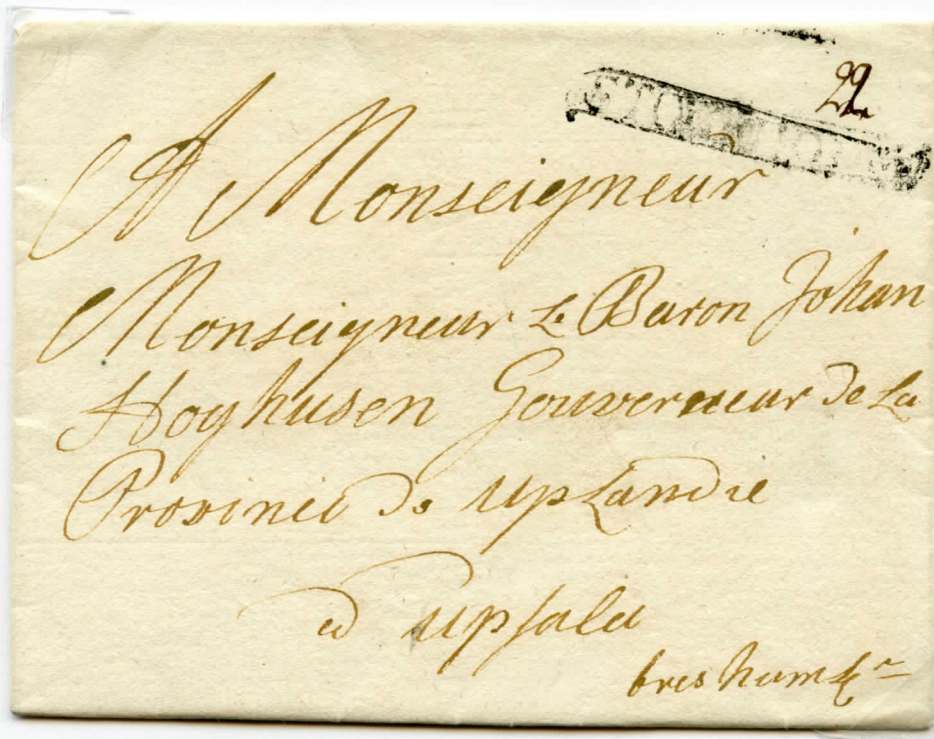 22
STOCKHOLM
A Monseigneur
Monseigneur Le Baron Johan
Hoghusen Gouverneur de La
Province de UpLandie
a Upsala
tres humb